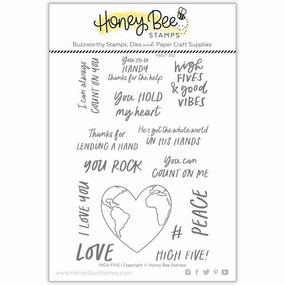 Honey Bee
STAMPS
Buzzworthy Stamps, Dies and Paper Craft Supplies
I can always
COUNT ON YOU
You're so
HANDY
thanks for the help
high
FIVES
& good
VIBES
You HOLD
my heart
Thanks for
LENDING A HAND
He's got the whole world
IN HIS HANDS
YOU ROCK
You can
COUNT ON ME
I LOVE YOU
# PEACE
LOVE
HIGH FIVE!
HIGH FIVE | Copyright © Honey Bee Stamps
www.HoneyBeeStamps.com